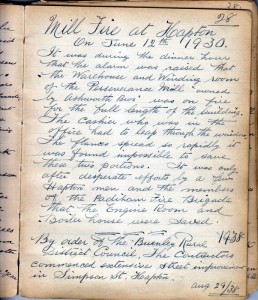 38.
28
Mill Fire at Hapton
On June 12th 1930.
It was during the dinner hour
that the alarm was raised that
the Warehouse and Winding room
of the Perseverance Mill owned
by Ashworth Bros was on fire
for the full length of the building.
The Cashier who was in the
office had to leap through the window
The flames spread so rapidly it
was found impossible to save
these two portions. It was only
after desperate efforts by a few
Hapton men and the members
of the Padiham Fire Brigade
that the Engine Room and
Boiler house were saved.
1938
By order of The Burnley Rural
District Council, The Contractors
commenced extensive street improvements
in Simpson St. Hapton.
Aug 29/38